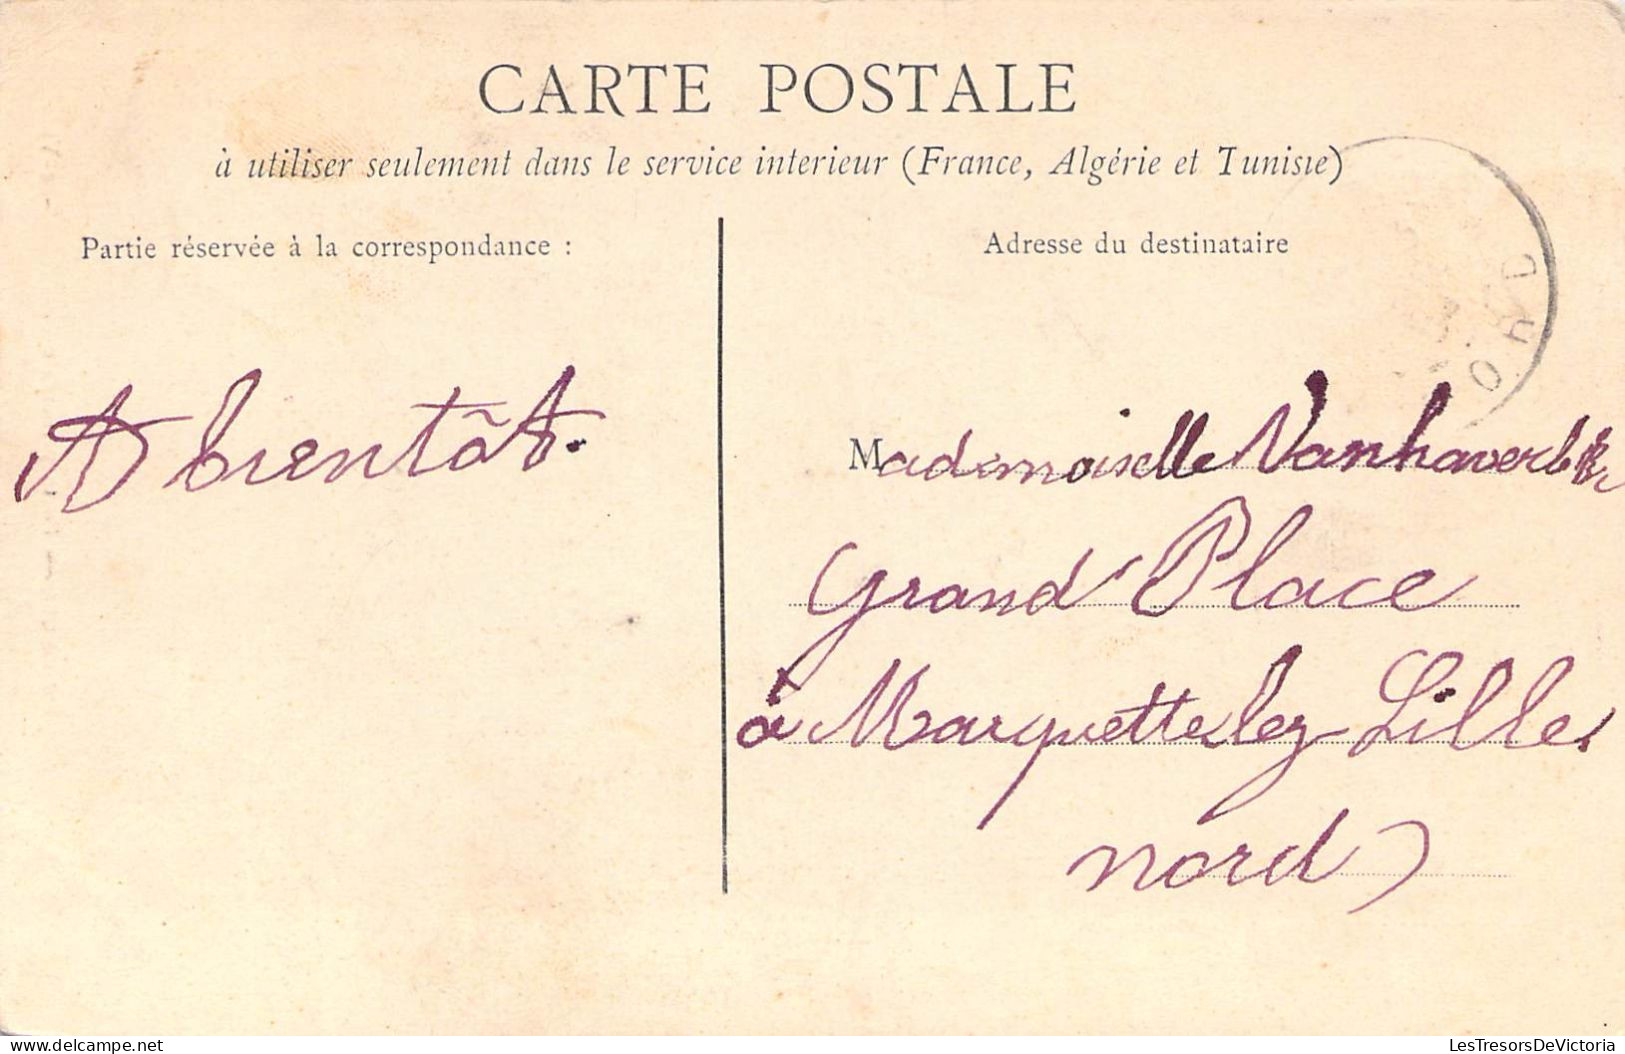 CARTE POSTALE
à utiliser seulement dans le service interieur (France, Algérie et Tunisie)
Partie réservée à la correspondance :
Adresse du destinataire
A bientôt.
Mademoiselle
Grand'Place
à Marquette lez Lille
nord)
LesTresorsDeVictoria
delcampe.net